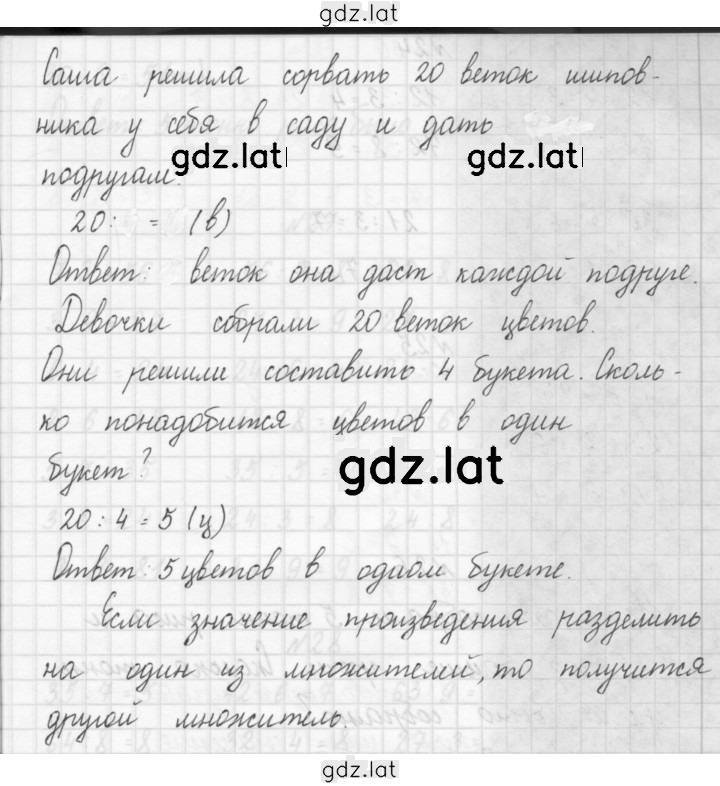 gdz.lat
Саша решила сорвать 20 веток шипов-
ника у себя в саду и дать
gdz.lat gdz.lat
подругам.
20: = (в)
Ответ: веток она даст каждой подруге.
Девочки собрали 20 веток цветов.
Они решили составить 4 букета. Сколь-
ко понадобится цветов в один
букет?
gdz.lat
20 : 4 = 5 (ц)
Ответ: 5 цветов в одном букете.
Если значение произведения разделить
на один из множителей, то получится
другой множитель.
gdz.lat